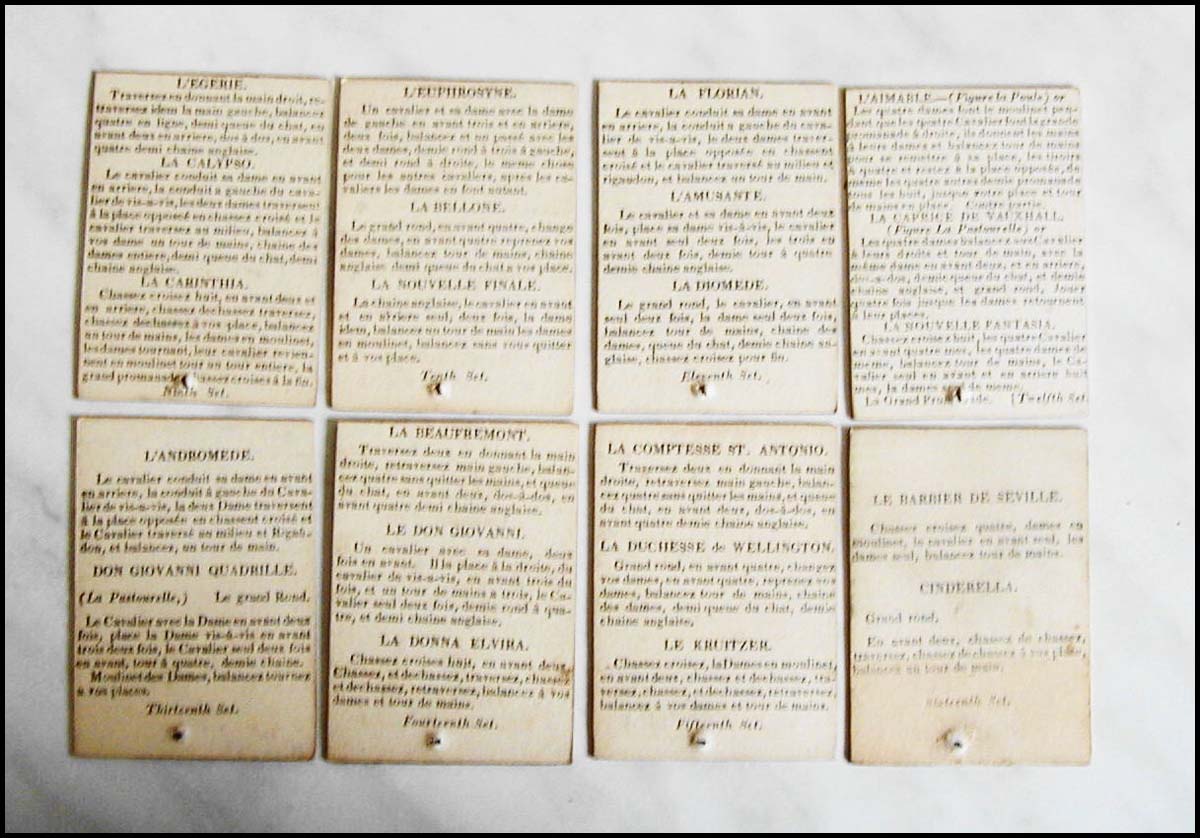 L'EGERIE.
Traversez en donnant la main droit, re-
traversez idem la main gauche, balancez
quatre en ligne, demi queue du chat, en
avant deux en arriere, dos à dos, en avant
quatre demi chaine anglaise.
LA CALYPSO.
Le cavalier conduit sa dame en avant
en arriere, la conduit a gauche du cava-
lier de vis-a-vis, les deux dames traversent
à la place opposé en chassez croisé et le
cavalier traversez au milieu, balancez à
vos dame un tour de mains, chaine des
dames entiere, demi queue du chat, demi
chaine anglaise.
LA CARINTHIA.
Chassez croisez huit, en avant deux et
en arriere, chassez dechassez traversez,
chassez dechassez à vos place, balancez
un tour de mains, les dames en moulinet,
les dames tournant, leur cavalier revien-
nent en moulinet tour au tour entiere, la
grand promanade, chassez croisez à la fin.
Ninth Set.
L'EUPHROSYNE.
Un cavalier et sa dame avec la dame
de gauche en avant trois et en arriere,
deux fois, balancez et un passé avec les
deux dames, demie rond à trois à gauche,
et demi rond à droite, le meme chose
pour les autres cavaliers, apres les ca-
valiers les dames en font autant.
LA BELLONE.
Le grand rond, en avant quatre, change
des dames, en avant quatre reprenez vos
dames, balancez tour de mains, chaine
anglaise demi queue du chat a vos place.
LA NOUVELLE FINALE.
La chaine anglaise, le cavalier en avant
et en arriere seul, deux fois, la dame
idem, balancez un tour de main les dames
en moulinet, balancez sans vous quitter
et à vos place.
Tenth Set.
LA FLORIAN.
Le cavalier conduit sa dame en avant
en arriere, la conduit a gauche du cava-
lier de vis-à-vis, le deux dames traver-
sent à la place opposée en chassent
croisé et le cavalier traversé au milieu et
rigaudon, et balancez un tour de main.
L'AMUSANTE.
Le cavalier et sa dame en avant deux
fois, place sa dame vis-à-vis, le cavalier
en avant seul deux fois, les trois en
avant deux fois, demie tour à quatre
demie chaine anglaise.
LA DIOMEDE.
Le grand rond, le cavalier, en avant
seul deux fois, la dame seul deux fois,
balancez tour de mains, chaine des
dames, queue du chat, demie chaine an-
glaise, chassez croisez pour fin.
Eleventh Set.
L'AIMABLE.—(Figure la Poule) or
Les quatre dames font le moulinet pen-
dant que les quatre Cavalier font la grande
promanade à droite, ils donnent les mains
à leurs dames et balancez tour de mains
pour se remettre à sa place, les tiroirs
à quatre et restez à la place opposée, de
meme les quatre autres demie promanade
tous les huit, jusque votre place et tour
de mains en place. Contre partie.
LA CAPRICE DE VAUXHALL.
(Figure La Pastourelle) or
Les quatre dames balancez avec Cavalier
à leurs droite et tour de main, avec la
même dame en avant deux, et en arriere,
dos-a-dos, demie queue du chat, et demie
chaine anglaise, et grand rond, Jouer
quatre fois jusque les dames retournent
à leur places.
LA NOUVELLE FANTASIA.
Chassez croisez huit, les quatre Cavalier
en avant quatre mes, les quatre dames de
meme, balancez tour de main, le Ca-
valier seul en avant et en arriere huit
mes, la dames seul de meme.
La Grand Promenade. [Twelfth Set.
L'ANDROMEDE.
Le cavalier conduit sa dame en avant
en arriere, la conduit à gauche du Cava-
lier de vis-a-vis, la deux Dame traversent
à la place opposée en chassent croisé et
le Cavalier traversé au milieu et Rigau-
don, et balancez, un tour de main.
DON GIOVANNI QUADRILLE.
(La Pastourelle,) Le grand Rond.
Le Cavalier avec la Dame en avant deux
fois, place la Dame vis-à-vis en avant
trois deux fois, le Cavalier seul deux fois
en avant, tour à quatre, demie chaine.
Moulinet des Dames, balancez tournez
a vos places.
Thirteenth Set.
LA BEAUFREMONT.
Traversez deux en donnant la main
droite, retraversez main gauche, balan-
cez quatre sans quitter les mains, et queue
du chat, en avant deux, dos-à-dos, en
avant quatre demi chaine anglaise.
LE DON GIOVANNI.
Un cavalier avec sa dame, deux
fois en avant. Il la place à la droite, du
cavalier de vis-a-vis, en avant trois du
fois, et un tour de mains a trois, le Ca-
valier seul deux fois, demie rond à qua-
tre, et demi chaine anglaise.
LA DONNA ELVIRA.
Chassez croises huit, en avant deux
Chassez, et dechassez, traversez, chassez
et dechassez, retraversez, balancez à vos
dames et tour de mains.
Fourteenth Set.
LA COMPTESSE ST. ANTONIO.
Traversez deux en donnant la main
droite, retraversez main gauche, balan-
cez quatre sans quitter les mains, et queue
du chat, en avant deux, dos-à-dos, en
avant quatre demie chaine anglaise.
LA DUCHESSE de WELLINGTON.
Grand rond, en avant quatre, changez
vos dames, en avant quatre, reprenez vos
dames, balancez tour de mains, chaine
des dames, demi queue du chat, demie
chaine anglaise.
LE KRUITZER.
Chassez croisez, la Dames en moulinet,
en avant deux, chassez et dechassez, tra-
versez, chassez, et dechassez, retraversez,
balancez à vos dames et tour de mains.
Fifteenth Set.
LE BARBIER DE SEVILLE.
Chassez croisez quatre, dames en
moulinet, le cavalier en avant seul, les
dames seul, balancez tour de mains.
CINDERELLA.
Grand rond.
En avant deux, chassez de chassez,
traversez, chassez de chassez à vos place,
balancez un tour de main.
Sixteenth Set.